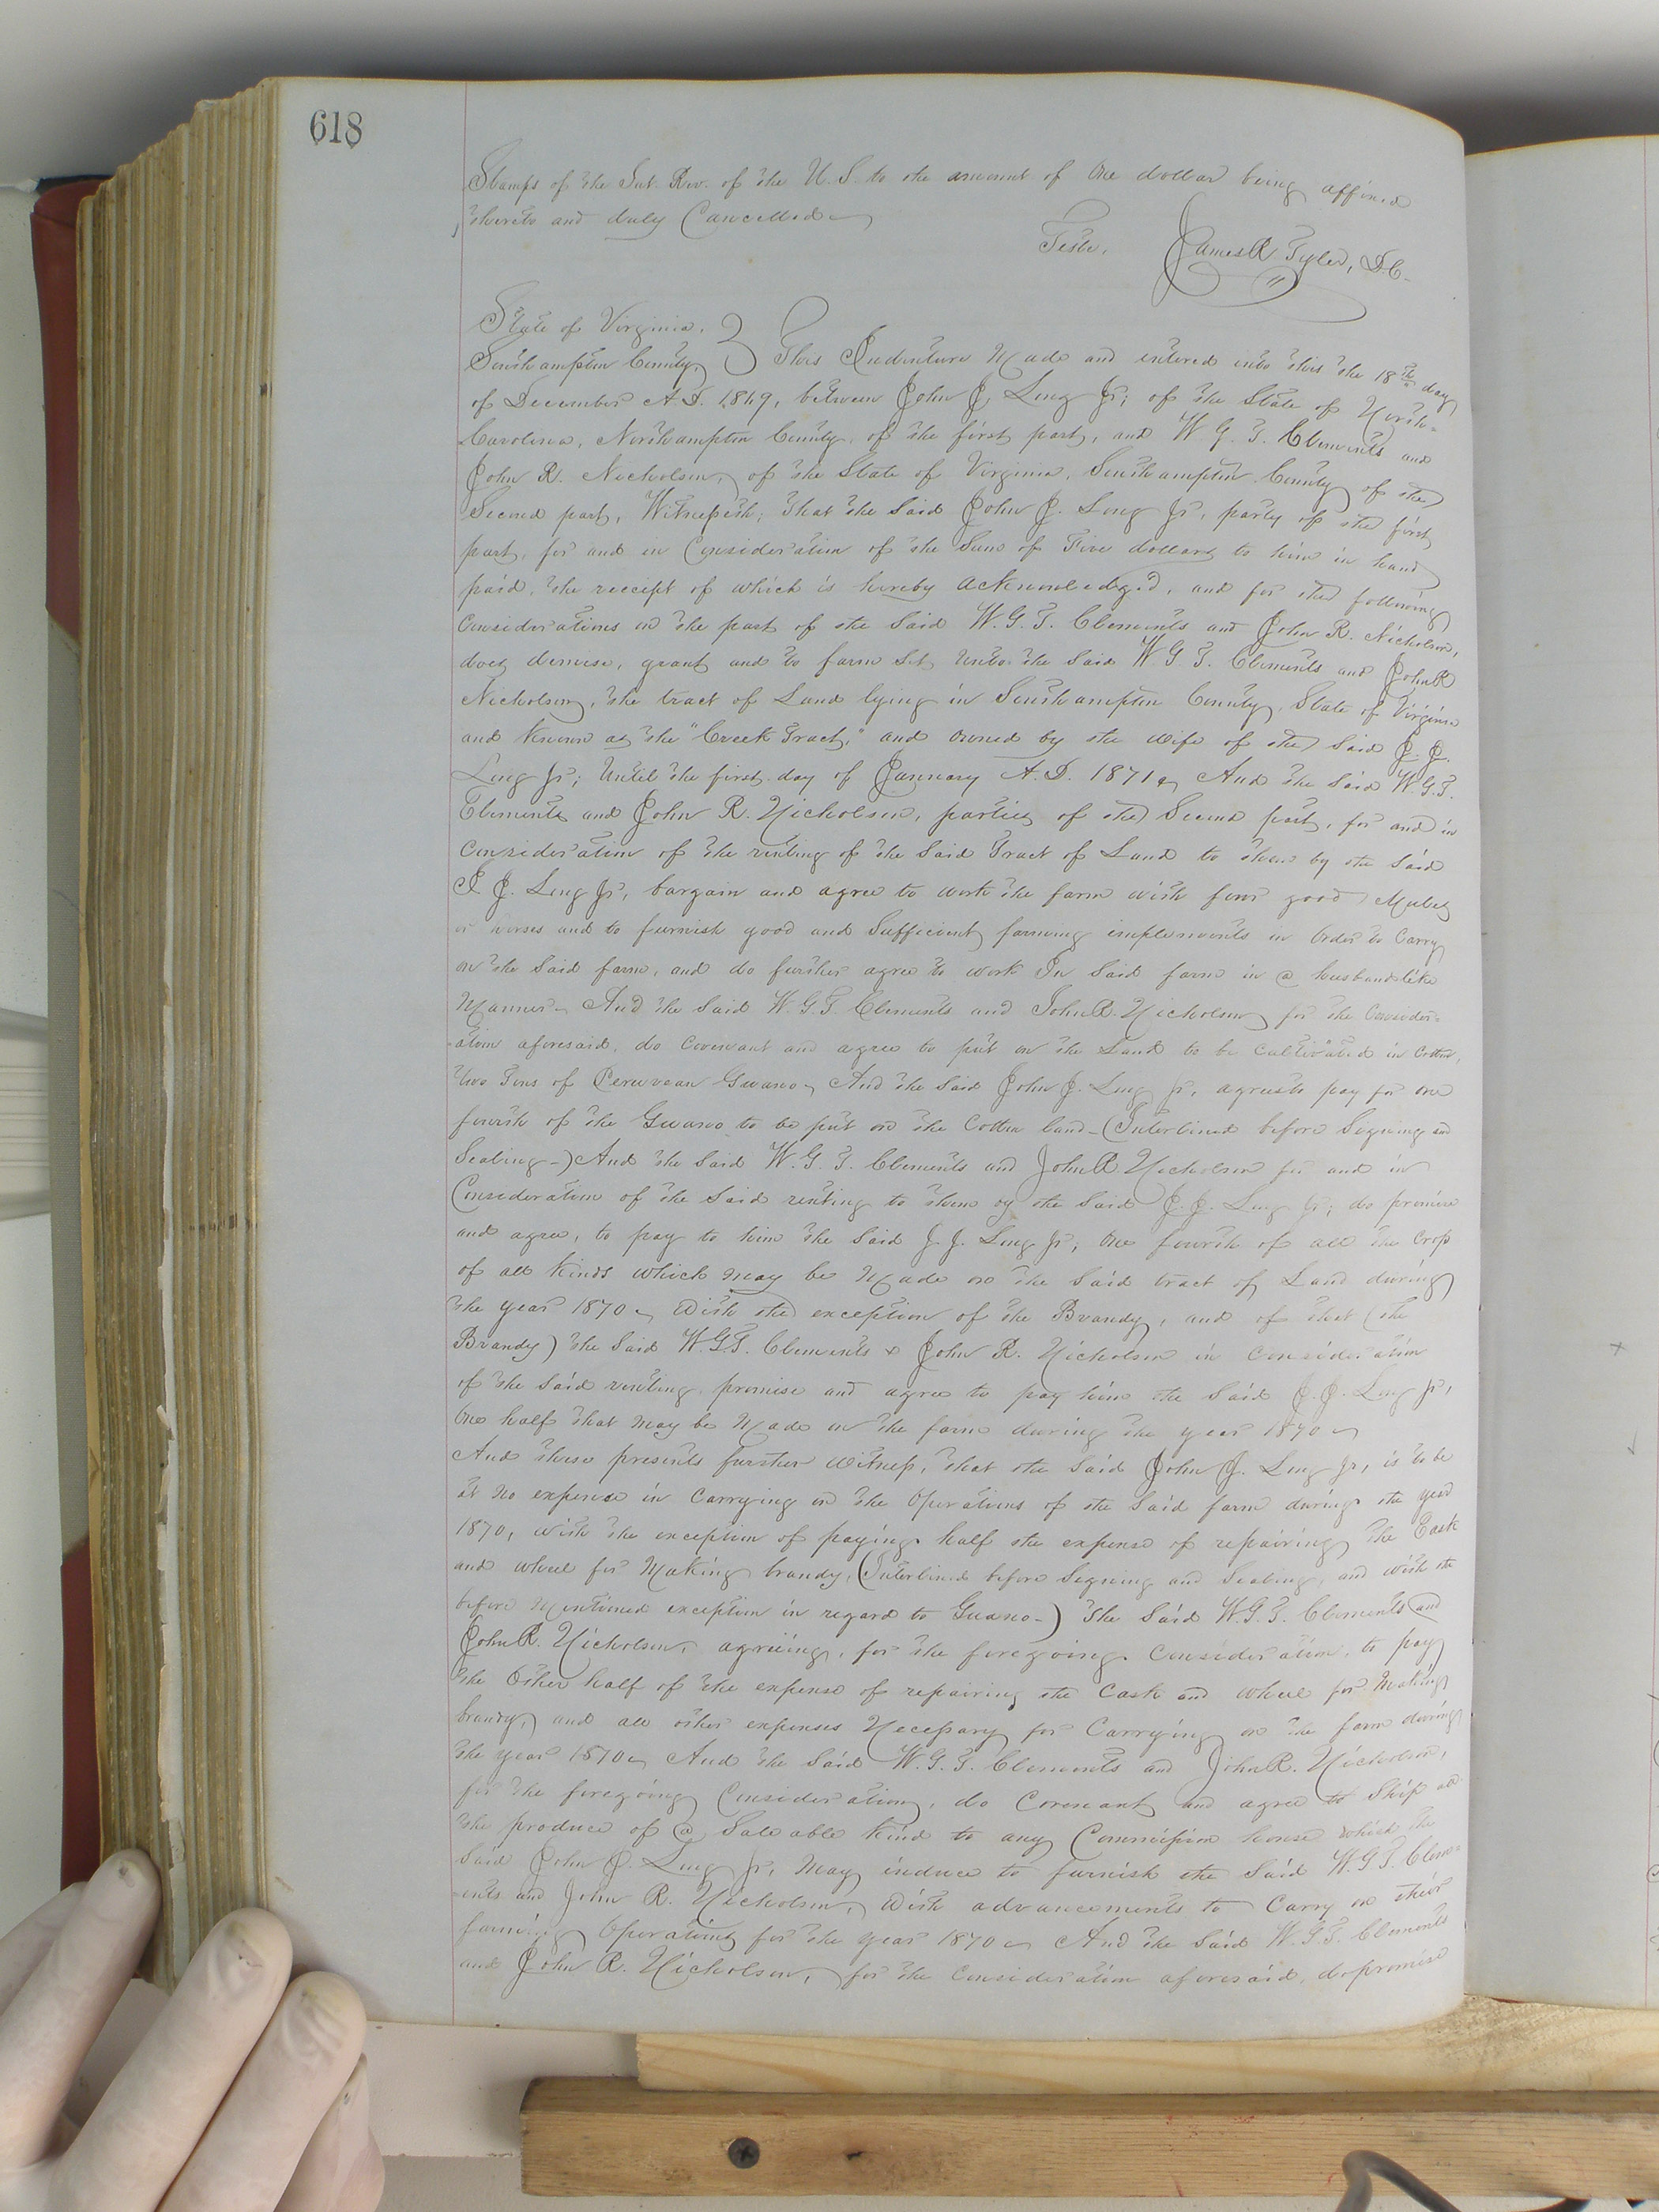 618
Stamps of the Int. Rev. of the U.S. to the amount of One dollar being affixed
thereto and duly Cancelled
Teste, James R Tyler, D.C.
State of Virginia,
Southampton County, This Indenture Made and entered into this the 18th day
of December A.D. 1869, between John J. Long Jr; of the State of North-
Carolina, Northampton County, of the first part, and W. G. T. Clements and
John R. Nicholson, of the State of Virginia, Southampton County of the
Second part, Witnesseth; that the Said John J. Long Jr, party of the first
part, for and in Consideration of the Sum of Five dollars to him in hand
paid, the receipt of which is hereby acknowledged, and for the following
Considerations on the part of the Said W. G. T. Clements and John R. Nicholson,
does demise, grant and to farm let unto the Said W. G. T. Clements and John R
Nicholson, the tract of Land lying in Southampton County, State of Virginia
and Known as the "Creek Tract," and owned by the wife of the Said J. J.
Long Jr; Until the first day of January A.D. 1871. And the Said W.G.T.
Clements and John R. Nicholson, parties of the Second part, for and in
Consideration of the renting of the Said Tract of Land to them by the Said
J. J. Long Jr, bargain and agree to work the farm with four good Mules
or horses and to furnish good and Sufficient farming implements in Order to Carry
on the Said farm, and do further agree to work In Said farm in a husbandlike
Manner. And the Said W. G. T. Clements and John R. Nicholson for the Consider-
-ation aforesaid, do Covenant and agree to put on the Land to be cultivated in Cotton,
two Tons of Peruvean Guano. And the Said John J. Long Jr, agrees to pay for one
fourth of the Guano to be put on the Cotton land-(Interlined before Signing and
Sealing-) And the Said W. G. T. Clements and John R Nicholson for and in
Consideration of the Said renting to them by the Said J. J. Long Jr; do promise
and agree, to pay to him the Said J. J. Long Jr; One fourth of all the Crop
of all Kinds which may be Made on the Said tract of Land during
the year 1870. With the exception of the Brandy, and of that (the
Brandy) the Said W.G.T. Clements & John R. Nicholson in Consideration
of the Said renting promise and agree to pay him the Said J. J. Long Jr,
One half that may be Made on the farm during the year 1870
And these presents further Witness, that the Said John J. Long Jr, is to be
at No expense in Carrying on the Operations of the Said farm during the year
1870, with the exception of paying half the expense of repairing the Cask
and wheel for Making brandy, (Interlined before Signing and Sealing, and with the
before Mentioned exception in regard to Guano-) The Said W.G.T. Clements and
John R. Nicholson, agreeing, for the foregoing Consideration, to pay
the Other half of the expense of repairing the Cask and wheel for Making
brandy, and all other expenses Necessary for Carrying on the farm during
the year 1870. And the Said W. G. T. Clements and John R. Nicholson,
for the foregoing Consideration, do Covenant and agree to Ship all
the produce of a Saleable Kind to any Commission house which the
Said John J. Long Jr, May induce to furnish the Said W. G. T. Clem-
-ents and John R. Nicholson, With advancements to Carry on their
farming Operations for the year 1870. And the Said W. G. T. Clements
and John R. Nicholson, for the Consideration aforesaid, do promise